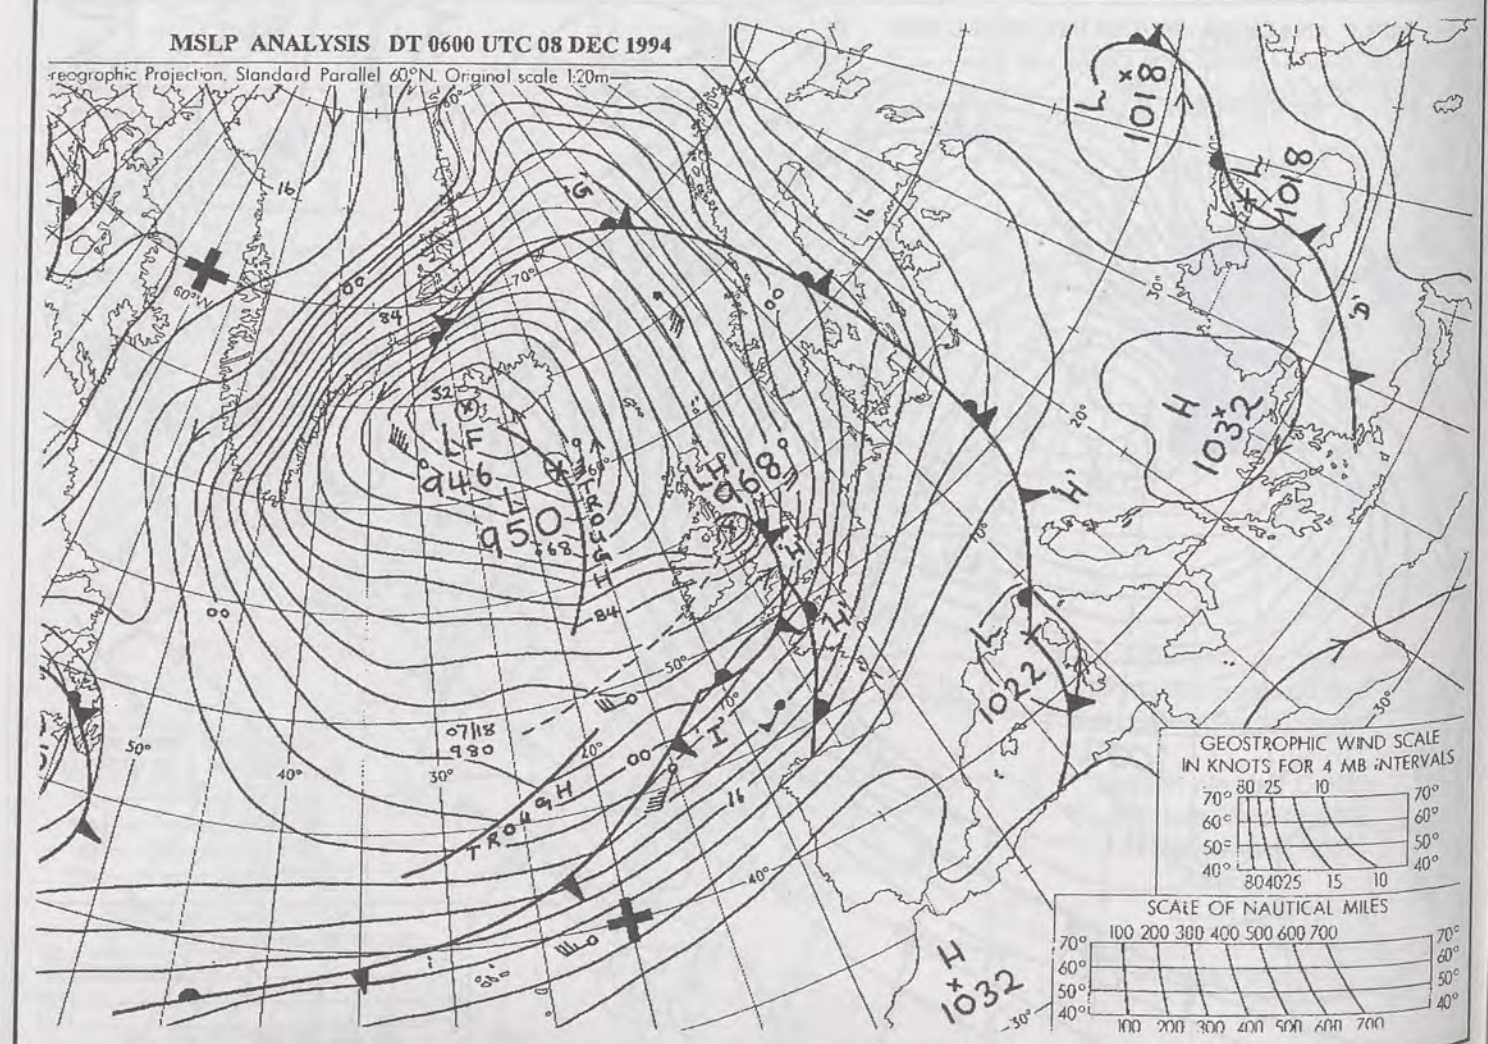 MSLP ANALYSIS DT 0600 UTC 08 DEC 1994
reographic Projection, Standard Parallel 60°N. Original scale 1:20m
60°
16
'G'
16
L
1018
L
1018
00
70°
00
84
30°
'D'
52
L F
946
L
950
68
60°
TROUGH
LH
968
20°
H
1032
'H'
'H'
10°
84
'H'
0°
00
50°
L
1022
30°
07/18
980
10°
'I'
20°
00
50°
40°
30°
TROUGH
16
L
40°
H
1032
30°
GEOSTROPHIC WIND SCALE
IN KNOTS FOR 4 MB INTERVALS
80 25 10
70° 70°
60° 60°
50° 50°
40° 40°
80 40 25 15 10
SCALE OF NAUTICAL MILES
100 200 300 400 500 600 700
70° 70°
60° 60°
50° 50°
40° 40°
100 200 300 400 500 600 700